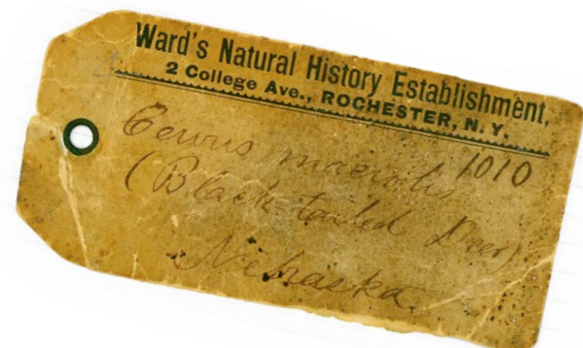 Ward's Natural History Establishment,
2 College Ave., ROCHESTER, N. Y.
1010
Cervus macrotis
(Black tailed Deer)
Nebraska